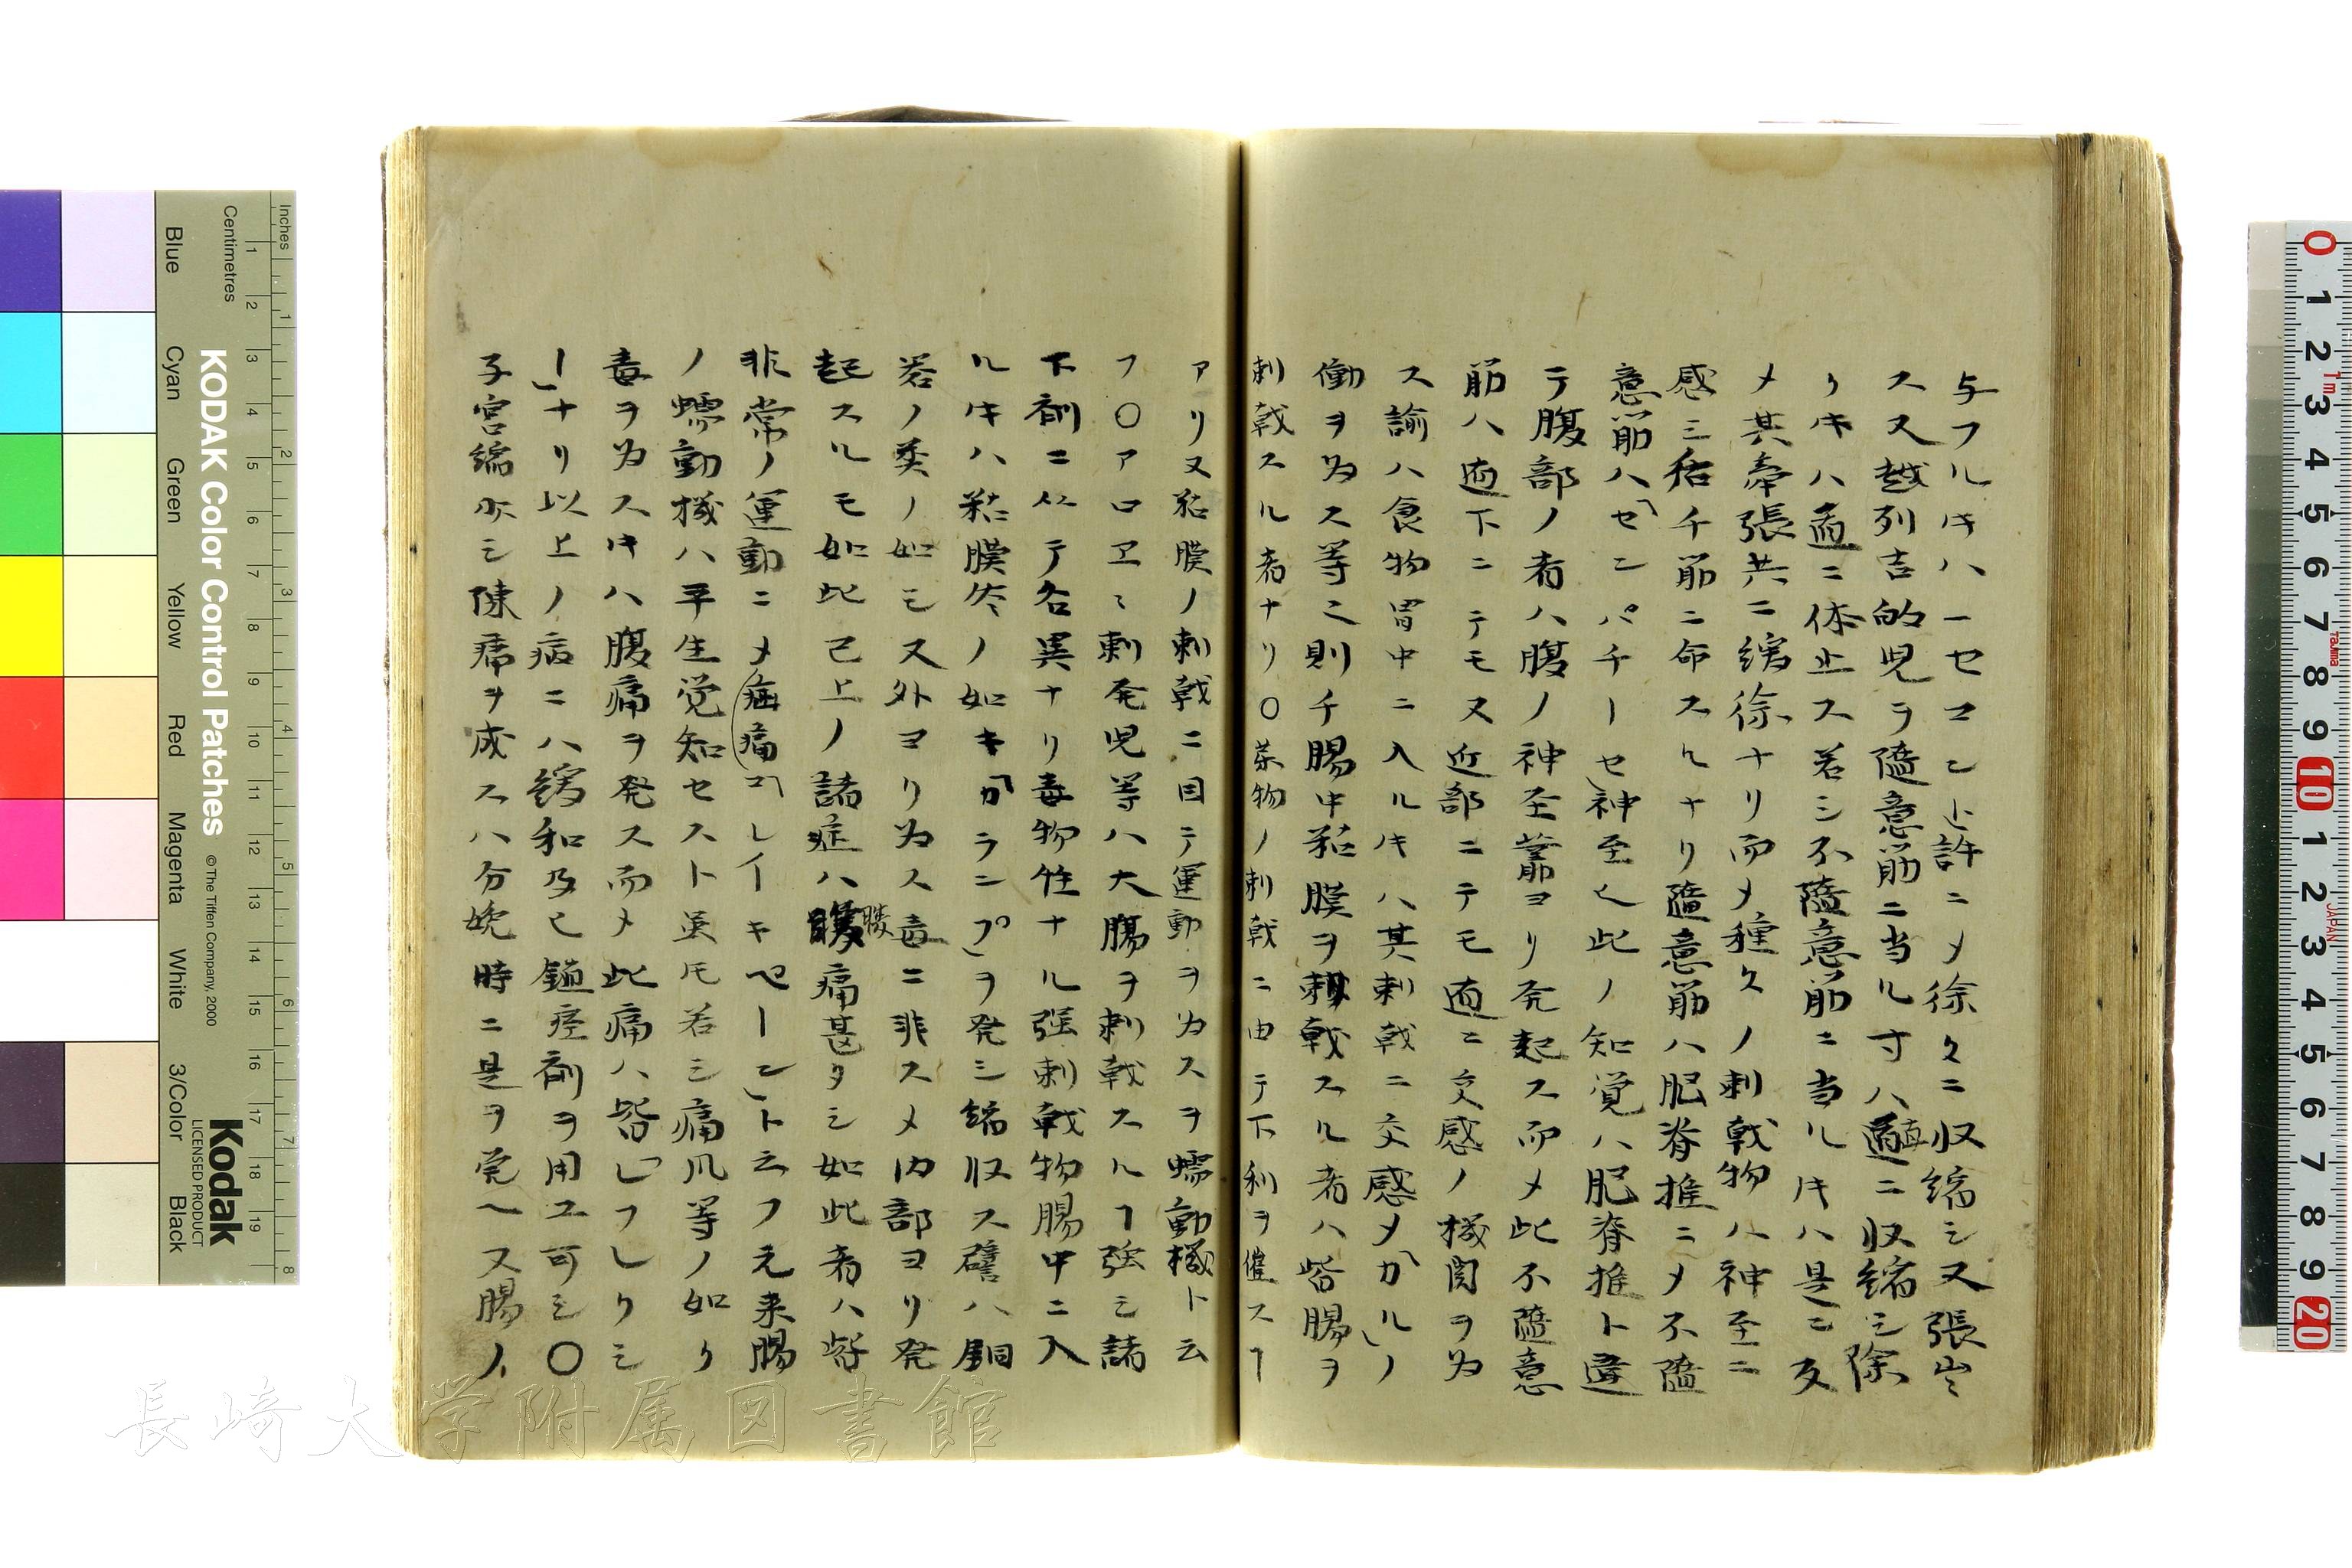 与フルキハ一セコンド許ニメ徐々ニ収縮シ又張出
ス又越列吉的児ヲ隨意筋ニ当ル寸ハ直ニ収縮シ除
クキハ直ニ休止ス若シ不隨意筋ニ当ルキハ是ニ反
メ其牽張共ニ緩徐ナリ而メ種々ノ刺戟物ハ神至ニ
感シ活チ筋ニ命スルナリ隨意筋ハ肥脊推ニメ不隨
意筋ハ「センパチーセ」神至也此ノ知覚ハ肥脊推ト違
テ腹部ノ者ハ腹ノ神至叢ヨリ発起ス而メ此不隨意
筋ハ直下ニテモ又近部ニテモ直ニ交感ノ機関ヲ為
ス諭ハ食物胃中ニ入ルキハ其刺戟ニ交感メ「カル」ノ
働ヲ為ス等之則チ腸中粘膜ヲ刺戟スル者ハ皆腸ヲ
刺戟スル者ナリ〇茶物ノ刺戟ニ由テ下利ヲ催スヿ
アリ又粘膜ノ刺戟ニ因テ運動ヲカスヲ蠕動機ト云
フ〇アロエヽ剌発児等ハ大腸ヲ刺戟スルヿ強シ諸
下剤ニ从テ各異ナリ毒物性ナル強刺戟物腸中ニ入
ルキハ粘膜炎ノ如キ「カランプ」ヲ発シ縮収ス譬ハ銅
若ノ類ノ如シ又外ヨリ為ス毒ニ非スメ内部ヨリ発
起スルモ如此已上ノ諸症ハ腹痛甚タシ如此者ハ皆
非常ノ運動ニメ痛「コレイキペーン」ト云フ元来腸
ノ蠕動機ハ平生覚知セスト虽𪜈若シ痛風等ノ如ク
毒ヲ為スキハ腹痛ヲ発ス而メ此痛ハ皆「レフレクシ
ー」ナリ以上ノ病ニハ緩和及ヒ鎮痙剤ヲ用ユ可シ〇
子宮縮亦シ陳痛ヲ成スハ分娩時ニ是ヲ覚ヘス腸ノ
KODAK Color Control Patches
© The Tiffen Company, 2000
Kodak
LICENSED PRODUCT
Inches
Centimetres
Blue
Cyan
Green
Yellow
Red
Magenta
White
3/Color
Black
長崎大学附属図書館